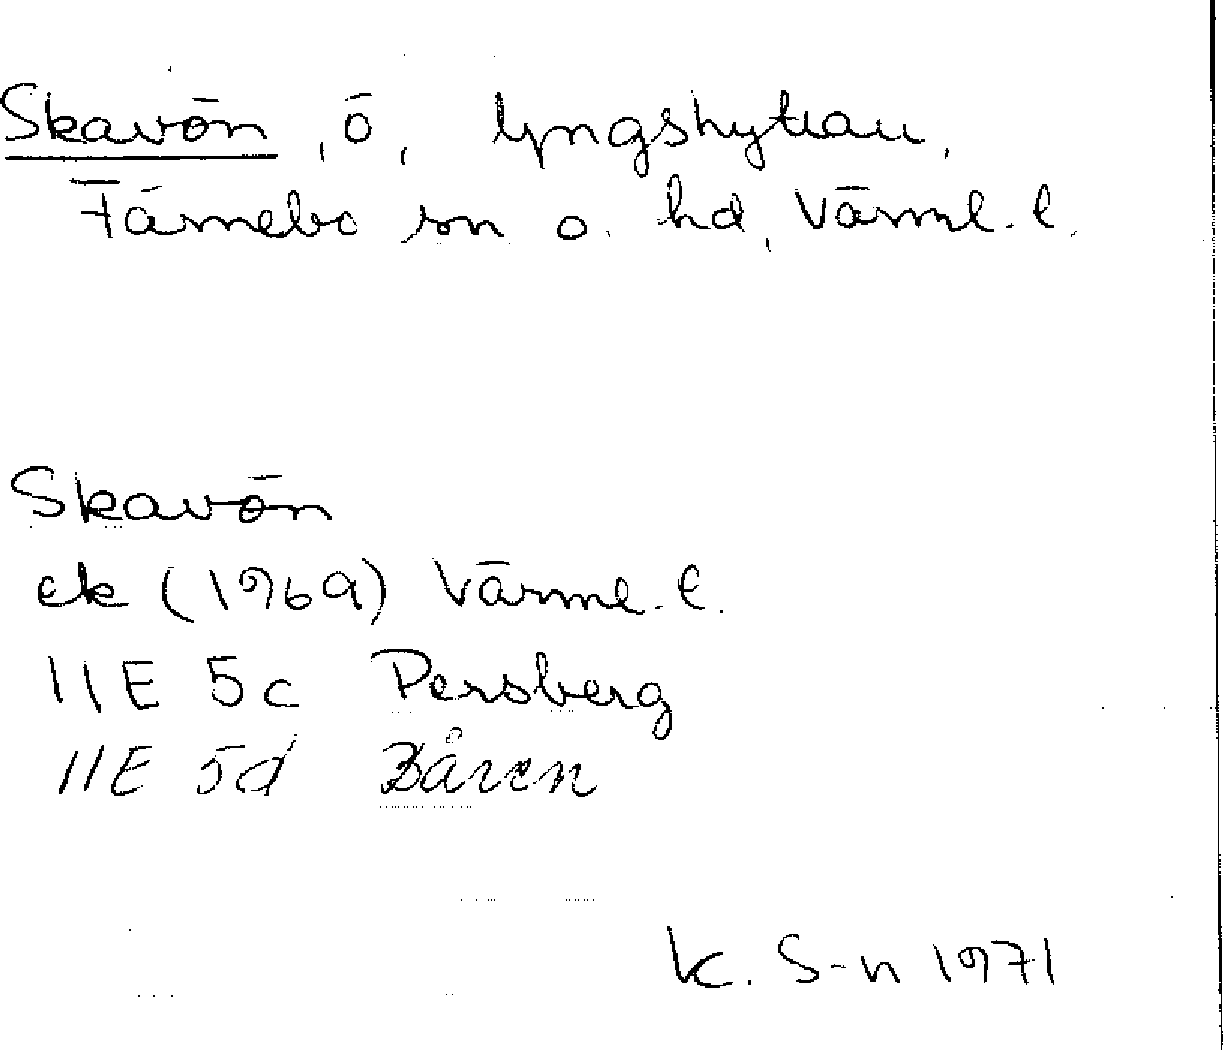 Skavön, ö, Yngshyttan,
Färnebo sn o. hd, Värml. l.
Skavön
ek (1969) Värml. l.
11E 5c Persberg
11E 5d Båren
K. S-n 1971